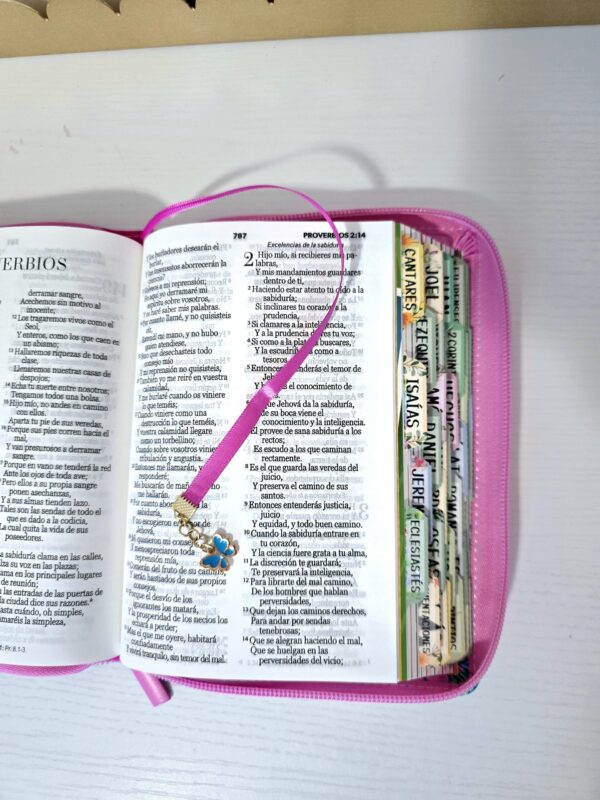 ERBIOS
derramar sangre,
Acechemos sin motivo al
inocente;
Los tragaremos vivos como el
Seol,
Y enteros, como los que caen en
un abismo;
Hallaremos riquezas de toda
clase,
Llenaremos nuestras casas de
despojos;
Echa tu suerte entre nosotros;
Tengamos todos una bolsa.
Hijo mío, no andes en camino
con ellos.
Aparta tu pie de sus veredas,
Porque sus pies corren hacia el
mal,
Y van presurosos a derramar
sangre.
Porque en vano se tenderá la red
Ante los ojos de toda ave;
Pero ellos a su propia sangre
ponen asechanzas,
Y a sus almas tienden lazo.
Tales son las sendas de todo el
que es dado a la codicia,
La cual quita la vida de sus
poseedores.
sabiduría clama en las calles,
su voz en las plazas;
en los principales lugares
de reunión;
las entradas de las puertas de
la ciudad dice sus razones.
¿Hasta cuándo, oh simples,
amaréis la simpleza,
787
PROVERBIOS 2:14
burladores desearán el
burlar,
los insensatos aborrecerán la
ciencia?
a mi reprensión;
He aquí yo derramaré mi
espíritu sobre vosotros,
Y os haré saber mis palabras.
Por cuanto llamé, y no quisisteis
oír,
Extendí mi mano, y no hubo
quien atendiese,
Sino que desechasteis todo
consejo mío
Y mi reprensión no quisisteis,
También yo me reiré en vuestra
calamidad,
Y me burlaré cuando os viniere
lo que teméis;
Cuando viniere como una
destrucción lo que teméis,
Y vuestra calamidad llegare
como un torbellino;
Cuando sobre vosotros viniere
tribulación y angustia.
Entonces me llamarán, y no
responderé;
Me buscarán de mañana, y no
me hallarán.
Por cuanto aborrecieron la
sabiduría,
Y no escogieron el temor de
Jehová,
Ni quisieron mi consejo,
Y menospreciaron toda
reprensión mía,
Comerán del fruto de su camino,
Y serán hastiados de sus propios
consejos.
Porque el desvío de los
ignorantes los matará,
Y la prosperidad de los necios los
echará a perder;
Mas el que me oyere, habitará
confiadamente
Y vivirá tranquilo, sin temor del mal.
Excelencias de la sabiduría
2 Hijo mío, si recibieres mis palabras,
Y mis mandamientos guardares
dentro de ti,
2 Haciendo estar atento tu oído a la
sabiduría;
Si inclinares tu corazón a la
prudencia,
3 Si clamares a la inteligencia,
Y a la prudencia dieres tu voz;
4 Si como a la plata la buscares,
Y la escudriñares como a
tesoros,
5 Entonces entenderás el temor de
Jehová,
Y hallarás el conocimiento de
Dios.
6 Porque Jehová da la sabiduría,
Y de su boca viene el
conocimiento y la inteligencia.
7 El provee de sana sabiduría a los
rectos;
Es escudo a los que caminan
rectamente.
8 Es el que guarda las veredas del
juicio,
Y preserva el camino de sus
santos.
9 Entonces entenderás justicia,
juicio
Y equidad, y todo buen camino.
10 Cuando la sabiduría entrare en
tu corazón,
Y la ciencia fuere grata a tu alma,
11 La discreción te guardará;
Te preservará la inteligencia,
12 Para librarte del mal camino,
De los hombres que hablan
perversidades,
13 Que dejan los caminos derechos,
Para andar por sendas
tenebrosas;
14 Que se alegran haciendo el mal,
Que se huelgan en las
perversidades del vicio;
CANTARES
ISAÍAS
ECLESIASTÉS
JOEL
HECHOS